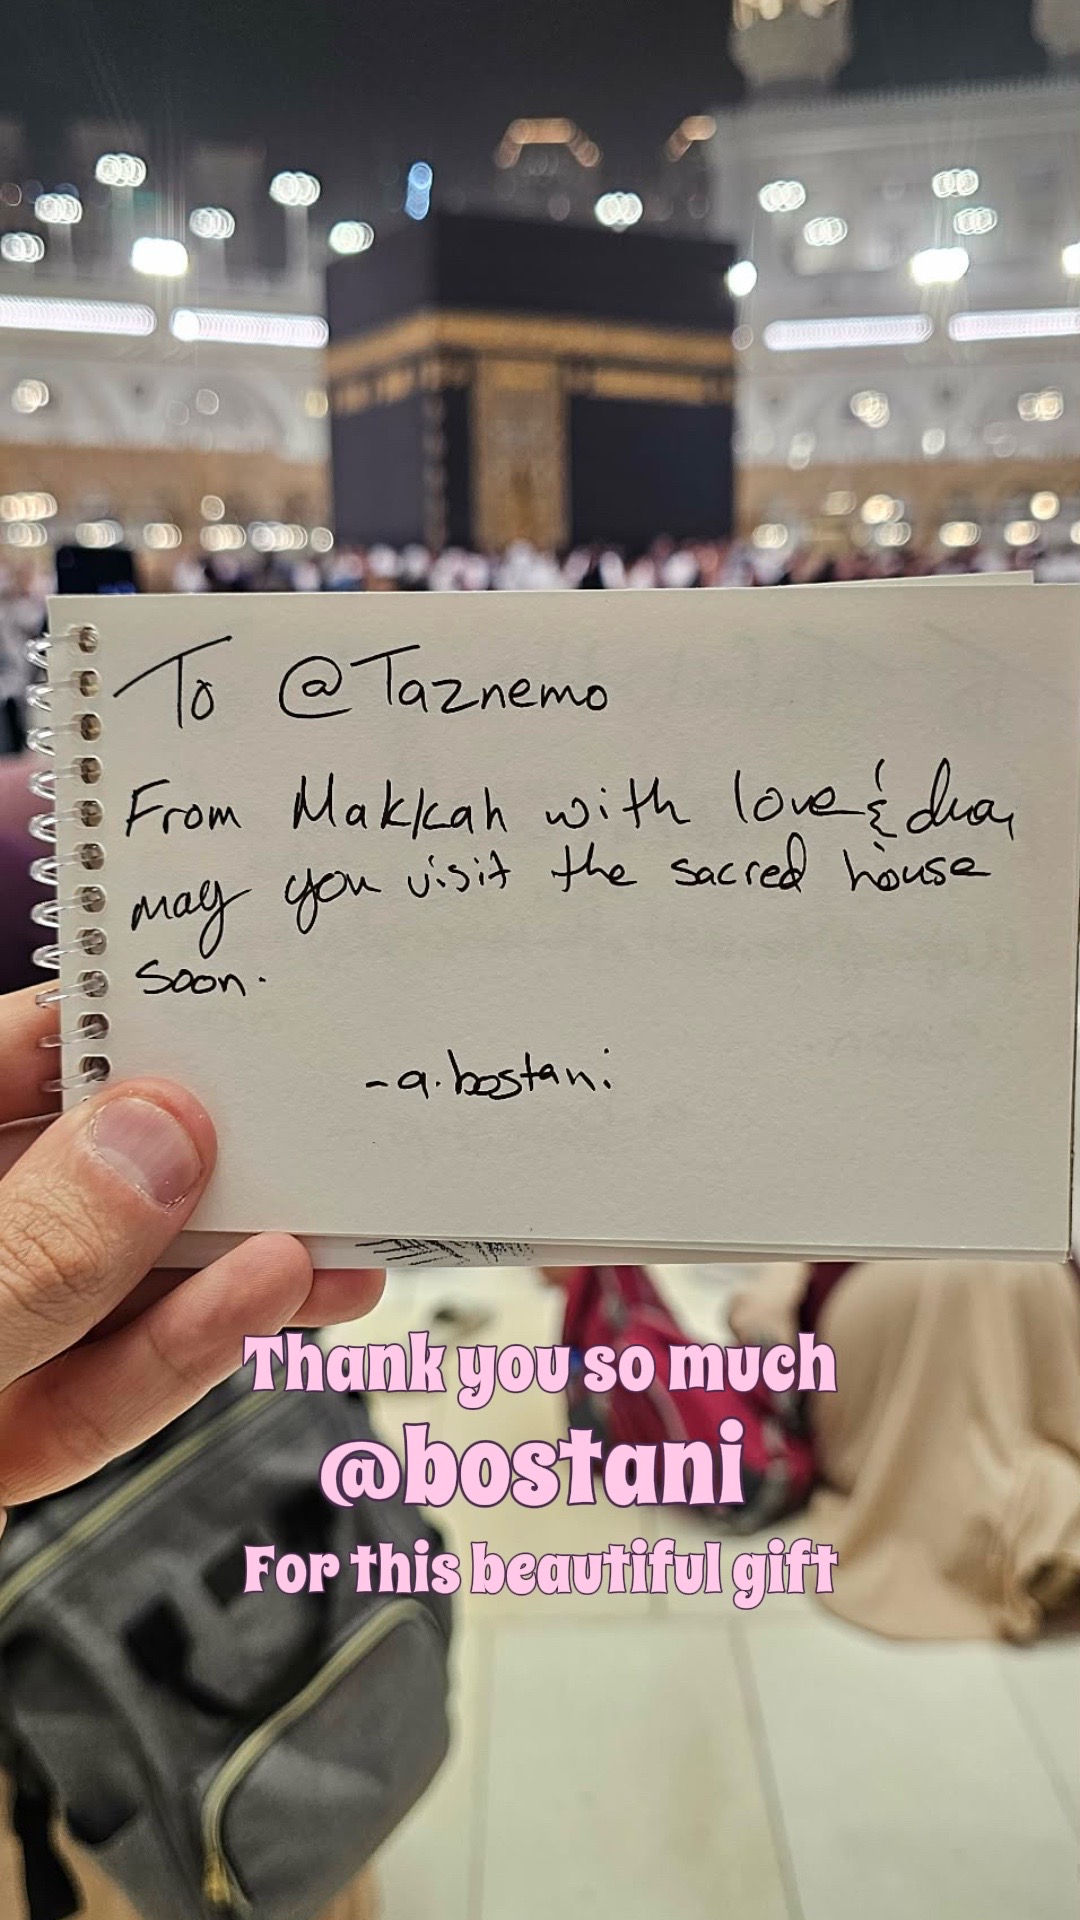 To @Taznemo
From Makkah with love & dua,
may you visit the sacred house
soon.
- a.bostani
Thank you so much
@bostani
For this beautiful gift